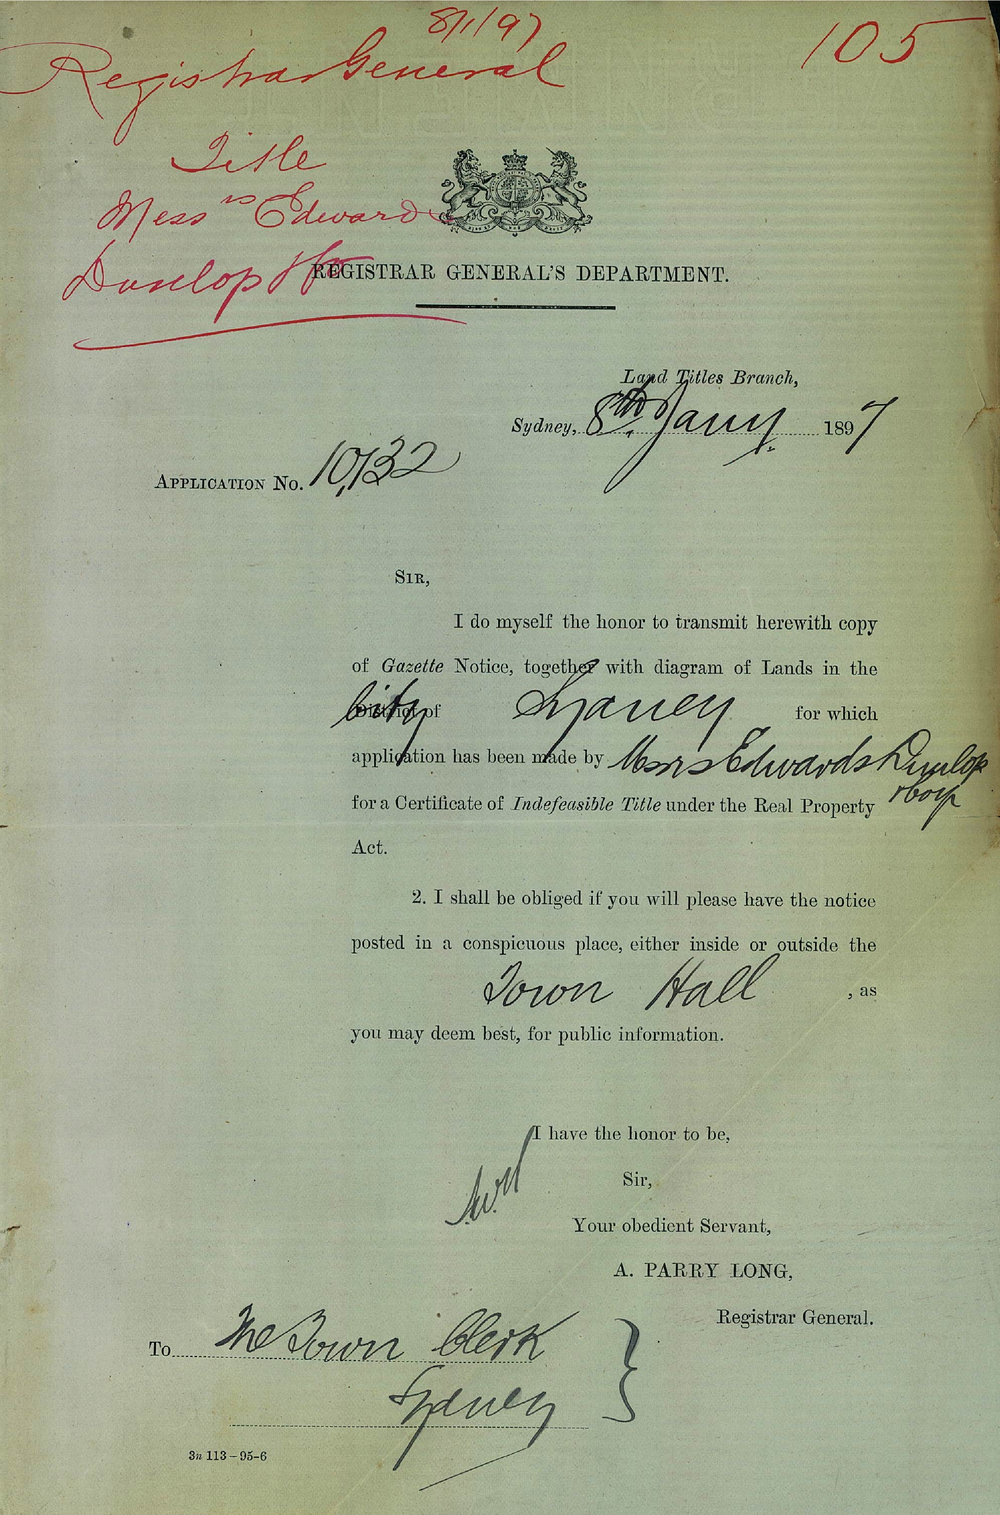 8/1/97
105
Registrar General
Title
Mess rs Edwards
Dunlop & Co
REGISTRAR GENERAL'S DEPARTMENT.
Land Titles Branch,
Sydney, 8th. Jany. 1897
APPLICATION NO. 10,132
SIR,
I do myself the honor to transmit herewith copy
of Gazette Notice, together with diagram of Lands in the
City of Sydney for which
application has been made by Messrs Edwards Dunlop
& Coy
for a Certificate of Indefeasible Title under the Real Property
Act.
2. I shall be obliged if you will please have the notice
posted in a conspicuous place, either inside or outside the
Town Hall , as
you may deem best, for public information.
I have the honor to be,
Sir,
Your obedient Servant,
A. PARRY LONG,
Registrar General.
To The Town Clerk
Sydney
3n 113-95-6